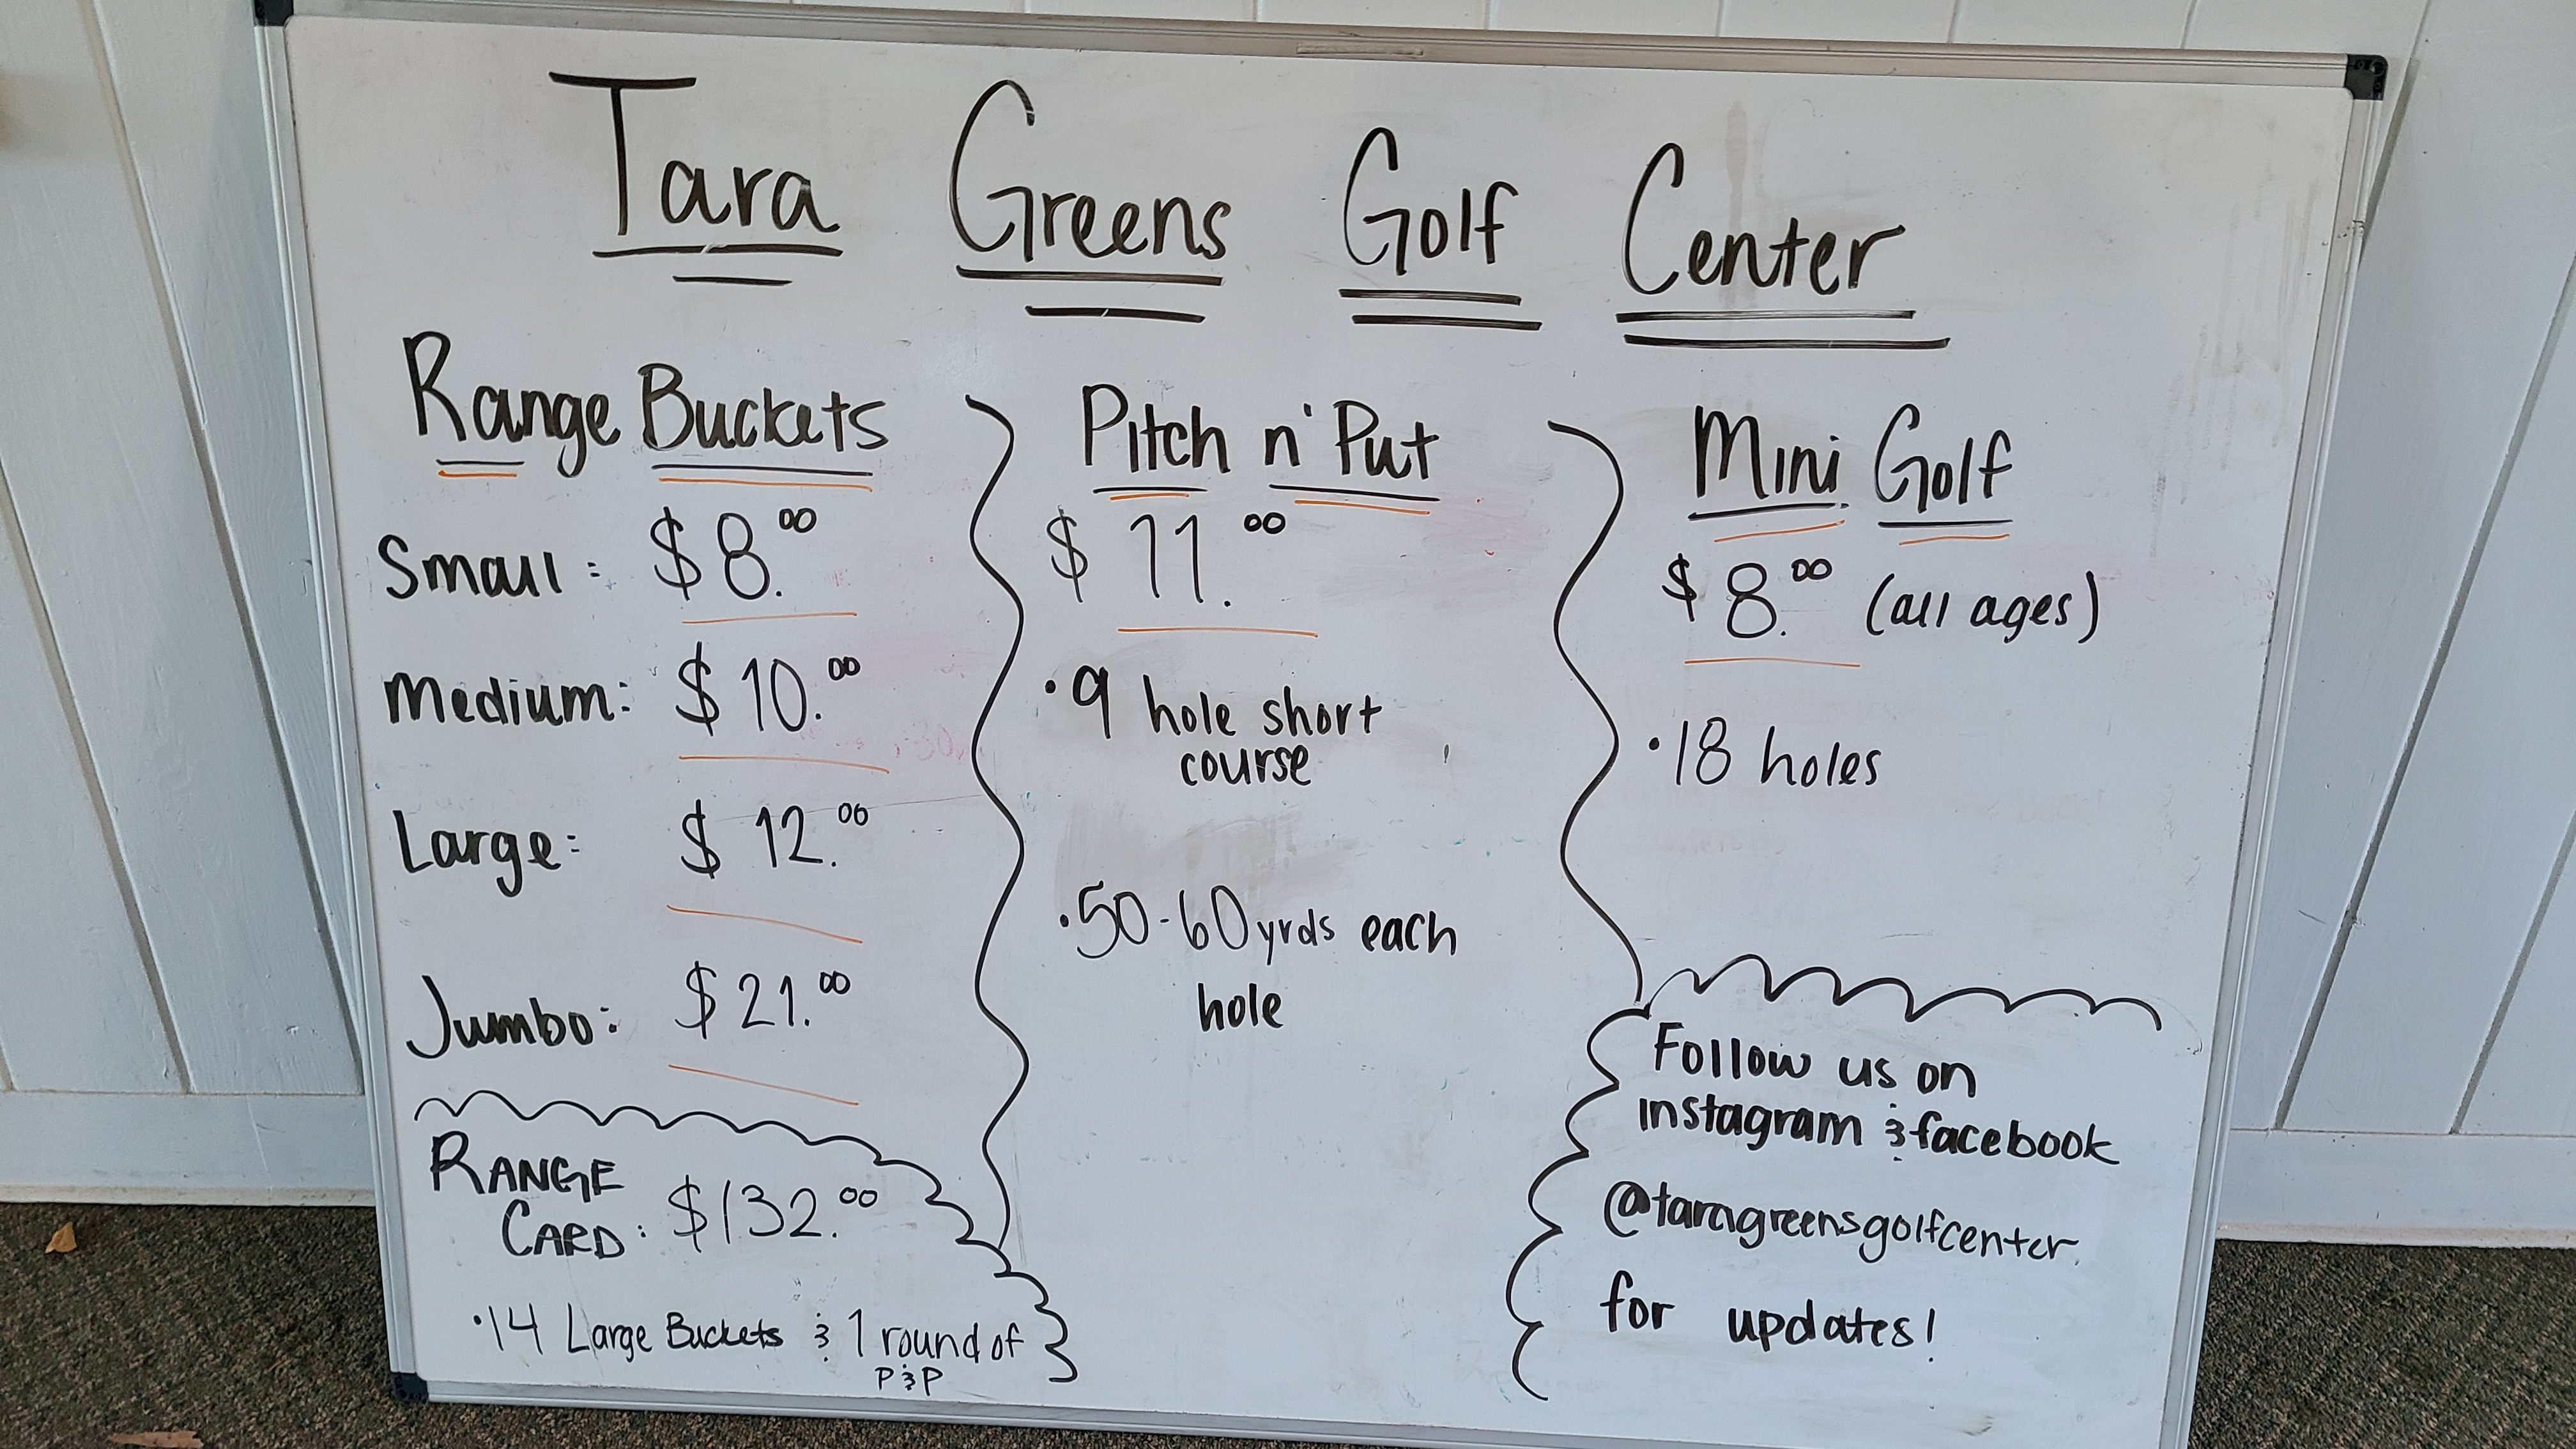 Tara Greens Golf Center
Range Buckets
Small: $8.00
Medium: $10.00
Large: $12.00
Jumbo: $21.00
RANGE
CARD: $132.00
•14 Large Buckets & 1 round of
P&P
Pitch n' Put
$11.00
•9 hole short
course
•50-60yrds each
hole
Mini Golf
$8.00 (all ages)
•18 holes
Follow us on
instagram & facebook
@taragreensgolfcenter
for updates!